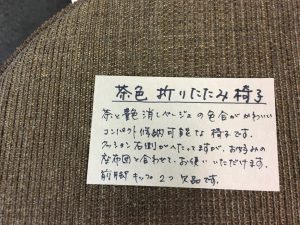 茶色 折りたたみ椅子
茶と艶消しベージュの色合がかわいい
コンパクト収納可能な椅子です。
クッション右側がへたってますが、お好みの
座布団と合わせて、お使いいただけます。
前脚キャップ2つ欠品です。